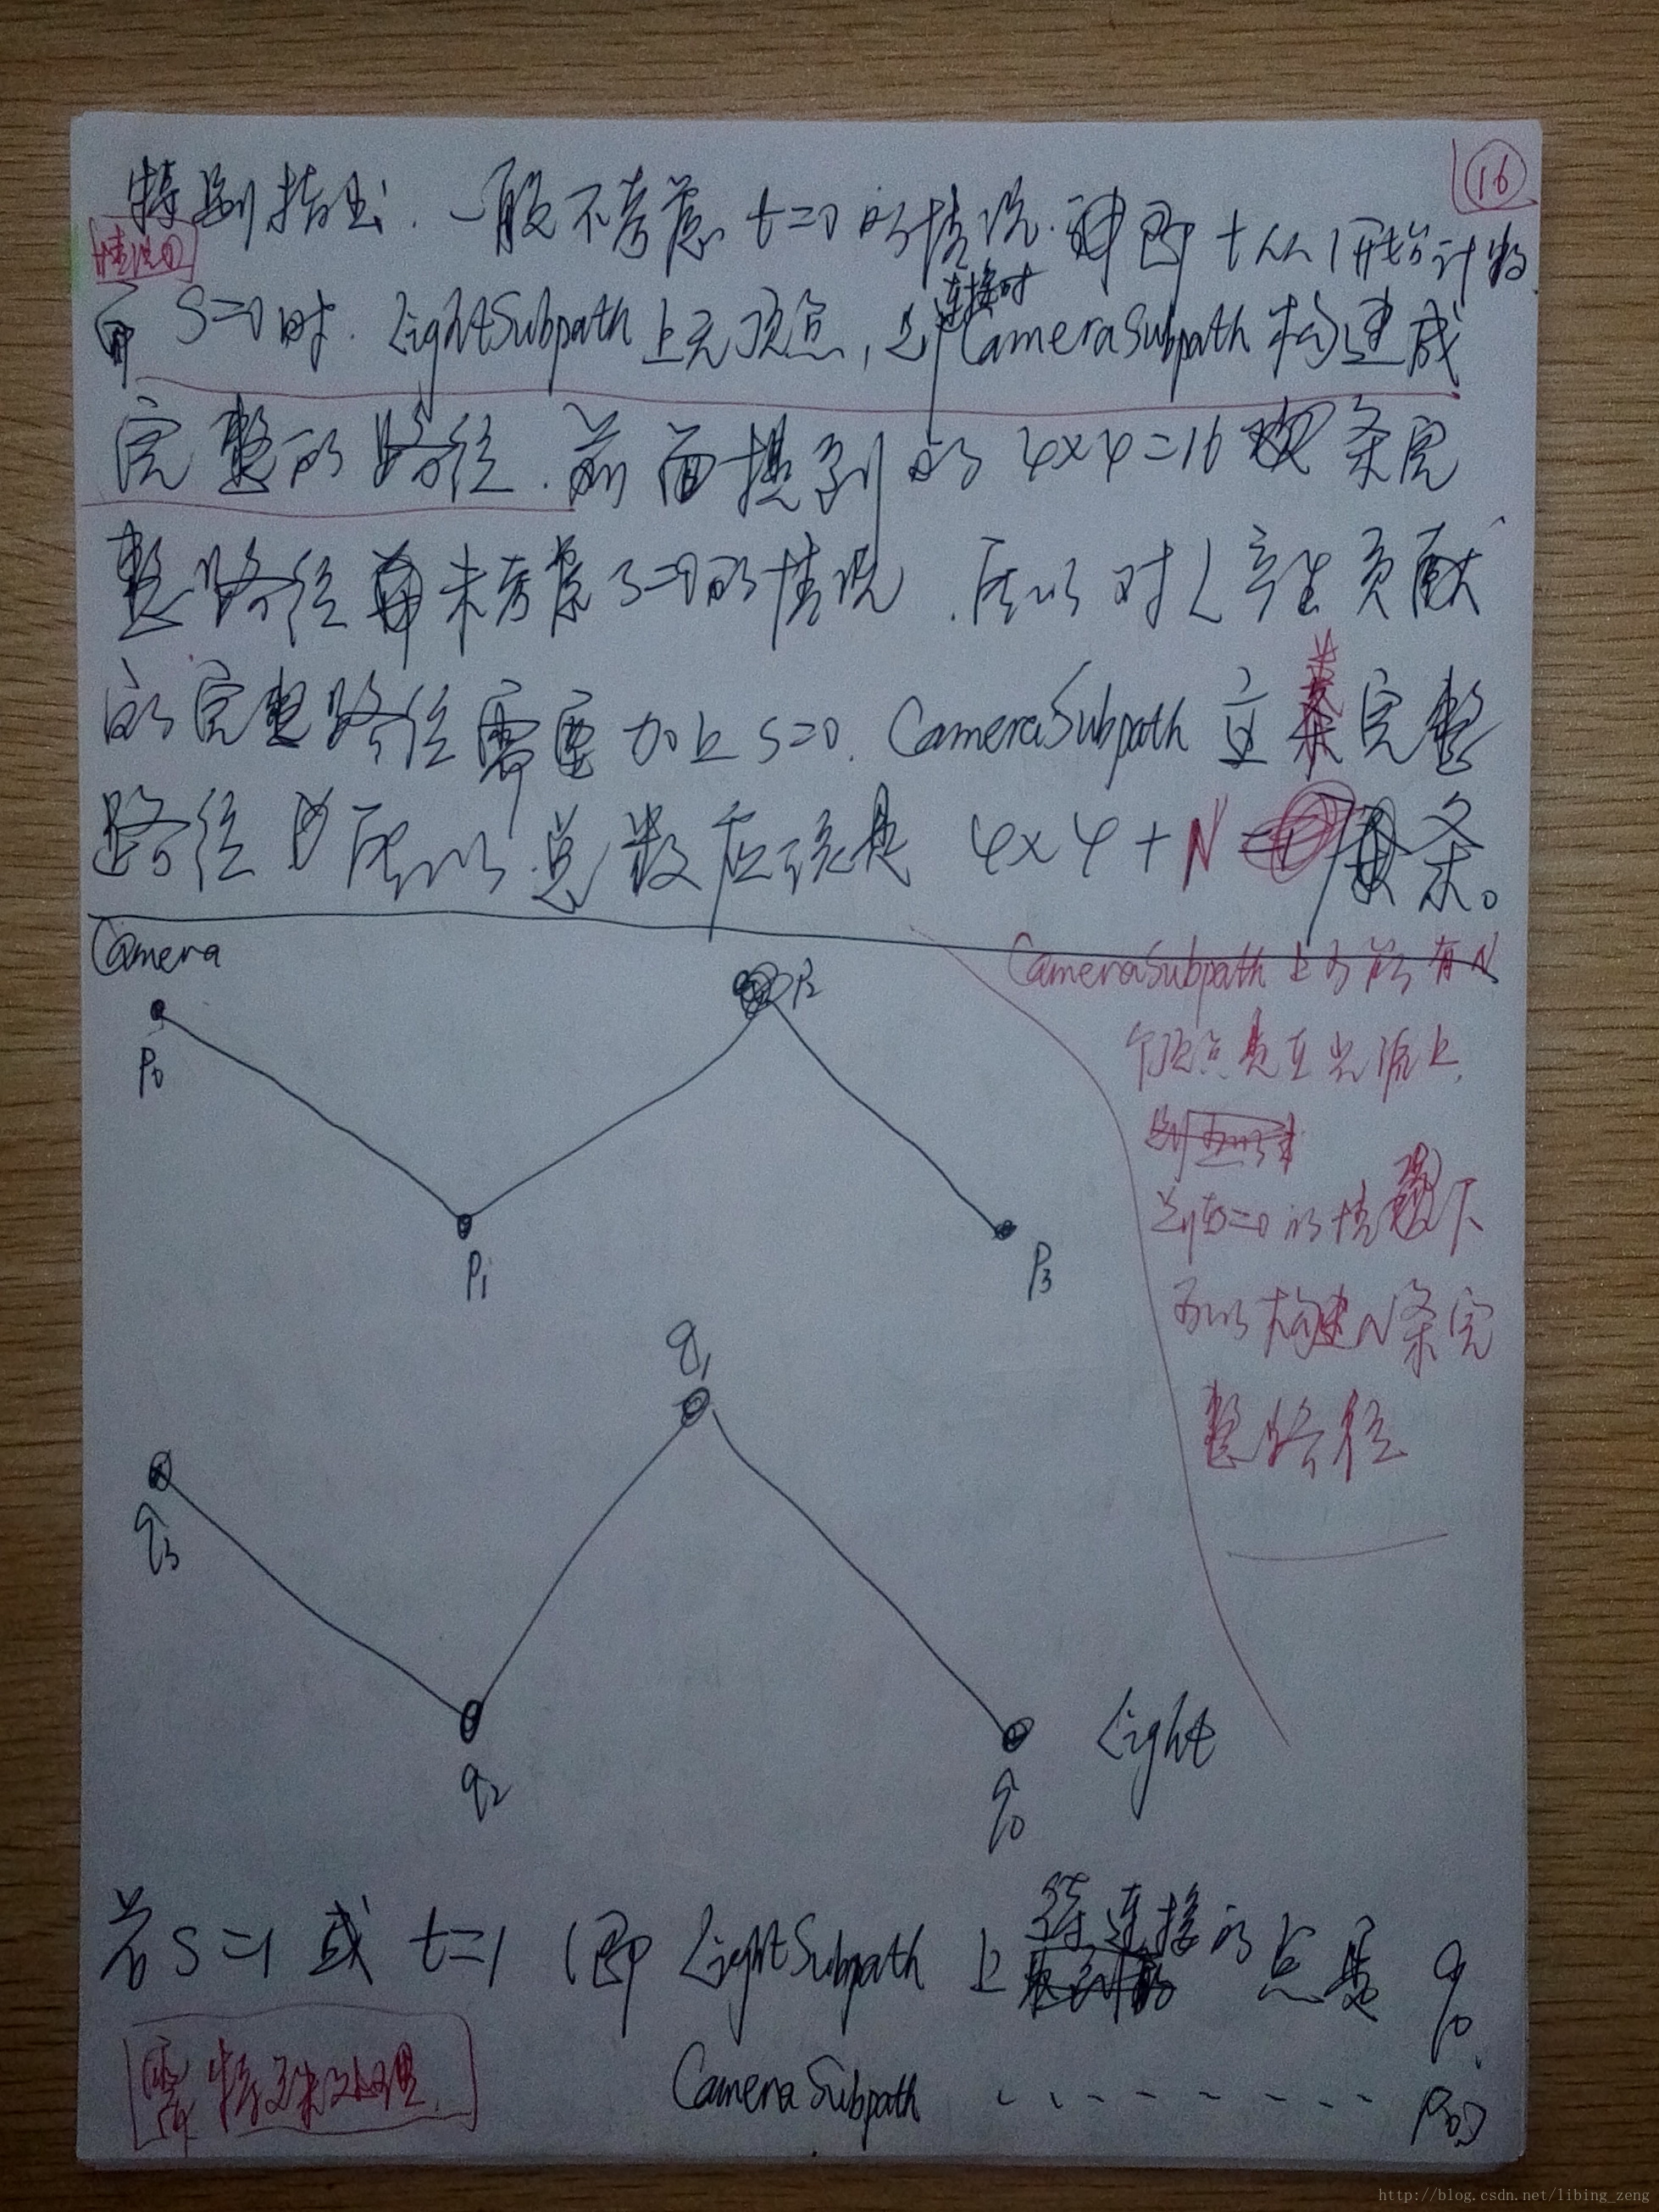 16
特别指出.一般不考虑 t=0 的情况.即 t 从 1 开始计数
情况①
而 S=0 时. LightSubpath 上无顶点, 连接时 CameraSubpath 构建成
完整的路径.前面提到的 4×4=16 条完
整路径并未考虑 S=0 的情况.所以对 L 产生贡献
的完整路径需要加上 S=0. CameraSubpath 完整
路径 所以总数应该是 4×4+N 条。
Camera
P0
P1
P2
P3
CameraSubpath 上 有 N
个顶点是在光源上,
=0 的情 下
可以构建 N 条完
整路径
q1
q3
q2
q0
Light
若 S=1 或 t=1 (即 LightSubpath 上待连接的点是 q0.
CameraSubpath - - - - - - - - P0)
需特殊处理.
http://blog.csdn.net/libing_zeng